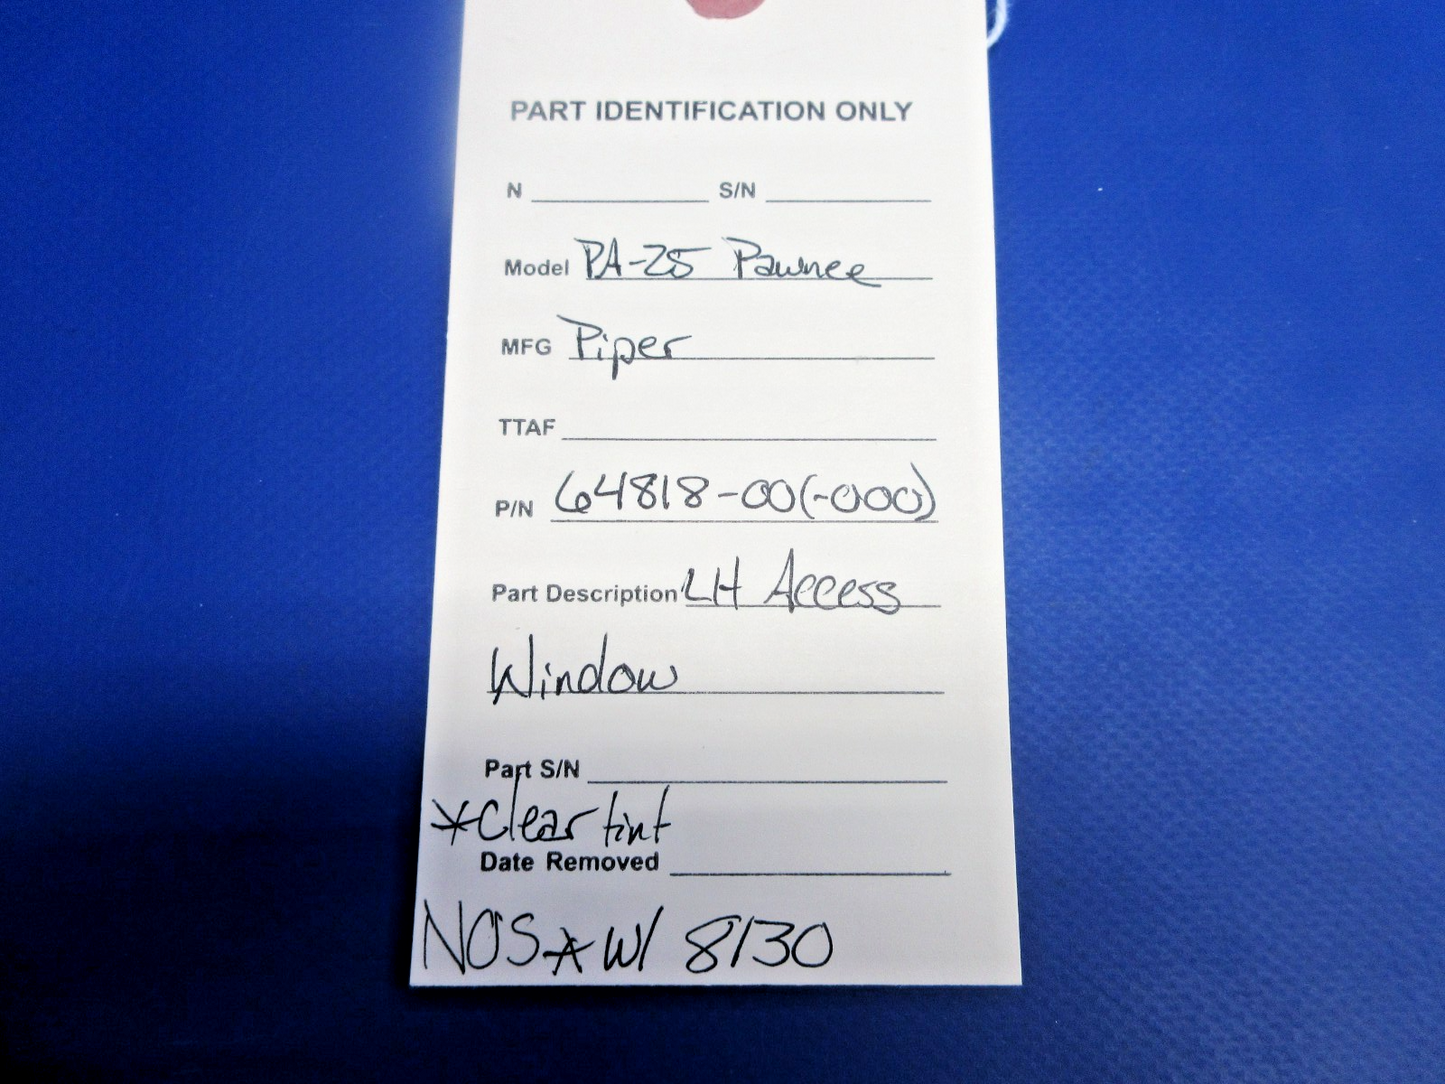 PART IDENTIFICATION ONLY
N S/N
Model PA-25 Pawnee
MFG Piper
TTAF
P/N 64818-00(-000)
Part Description LH Access
Window
Part S/N
*Clear tint
Date Removed
NOS* W/ 8130